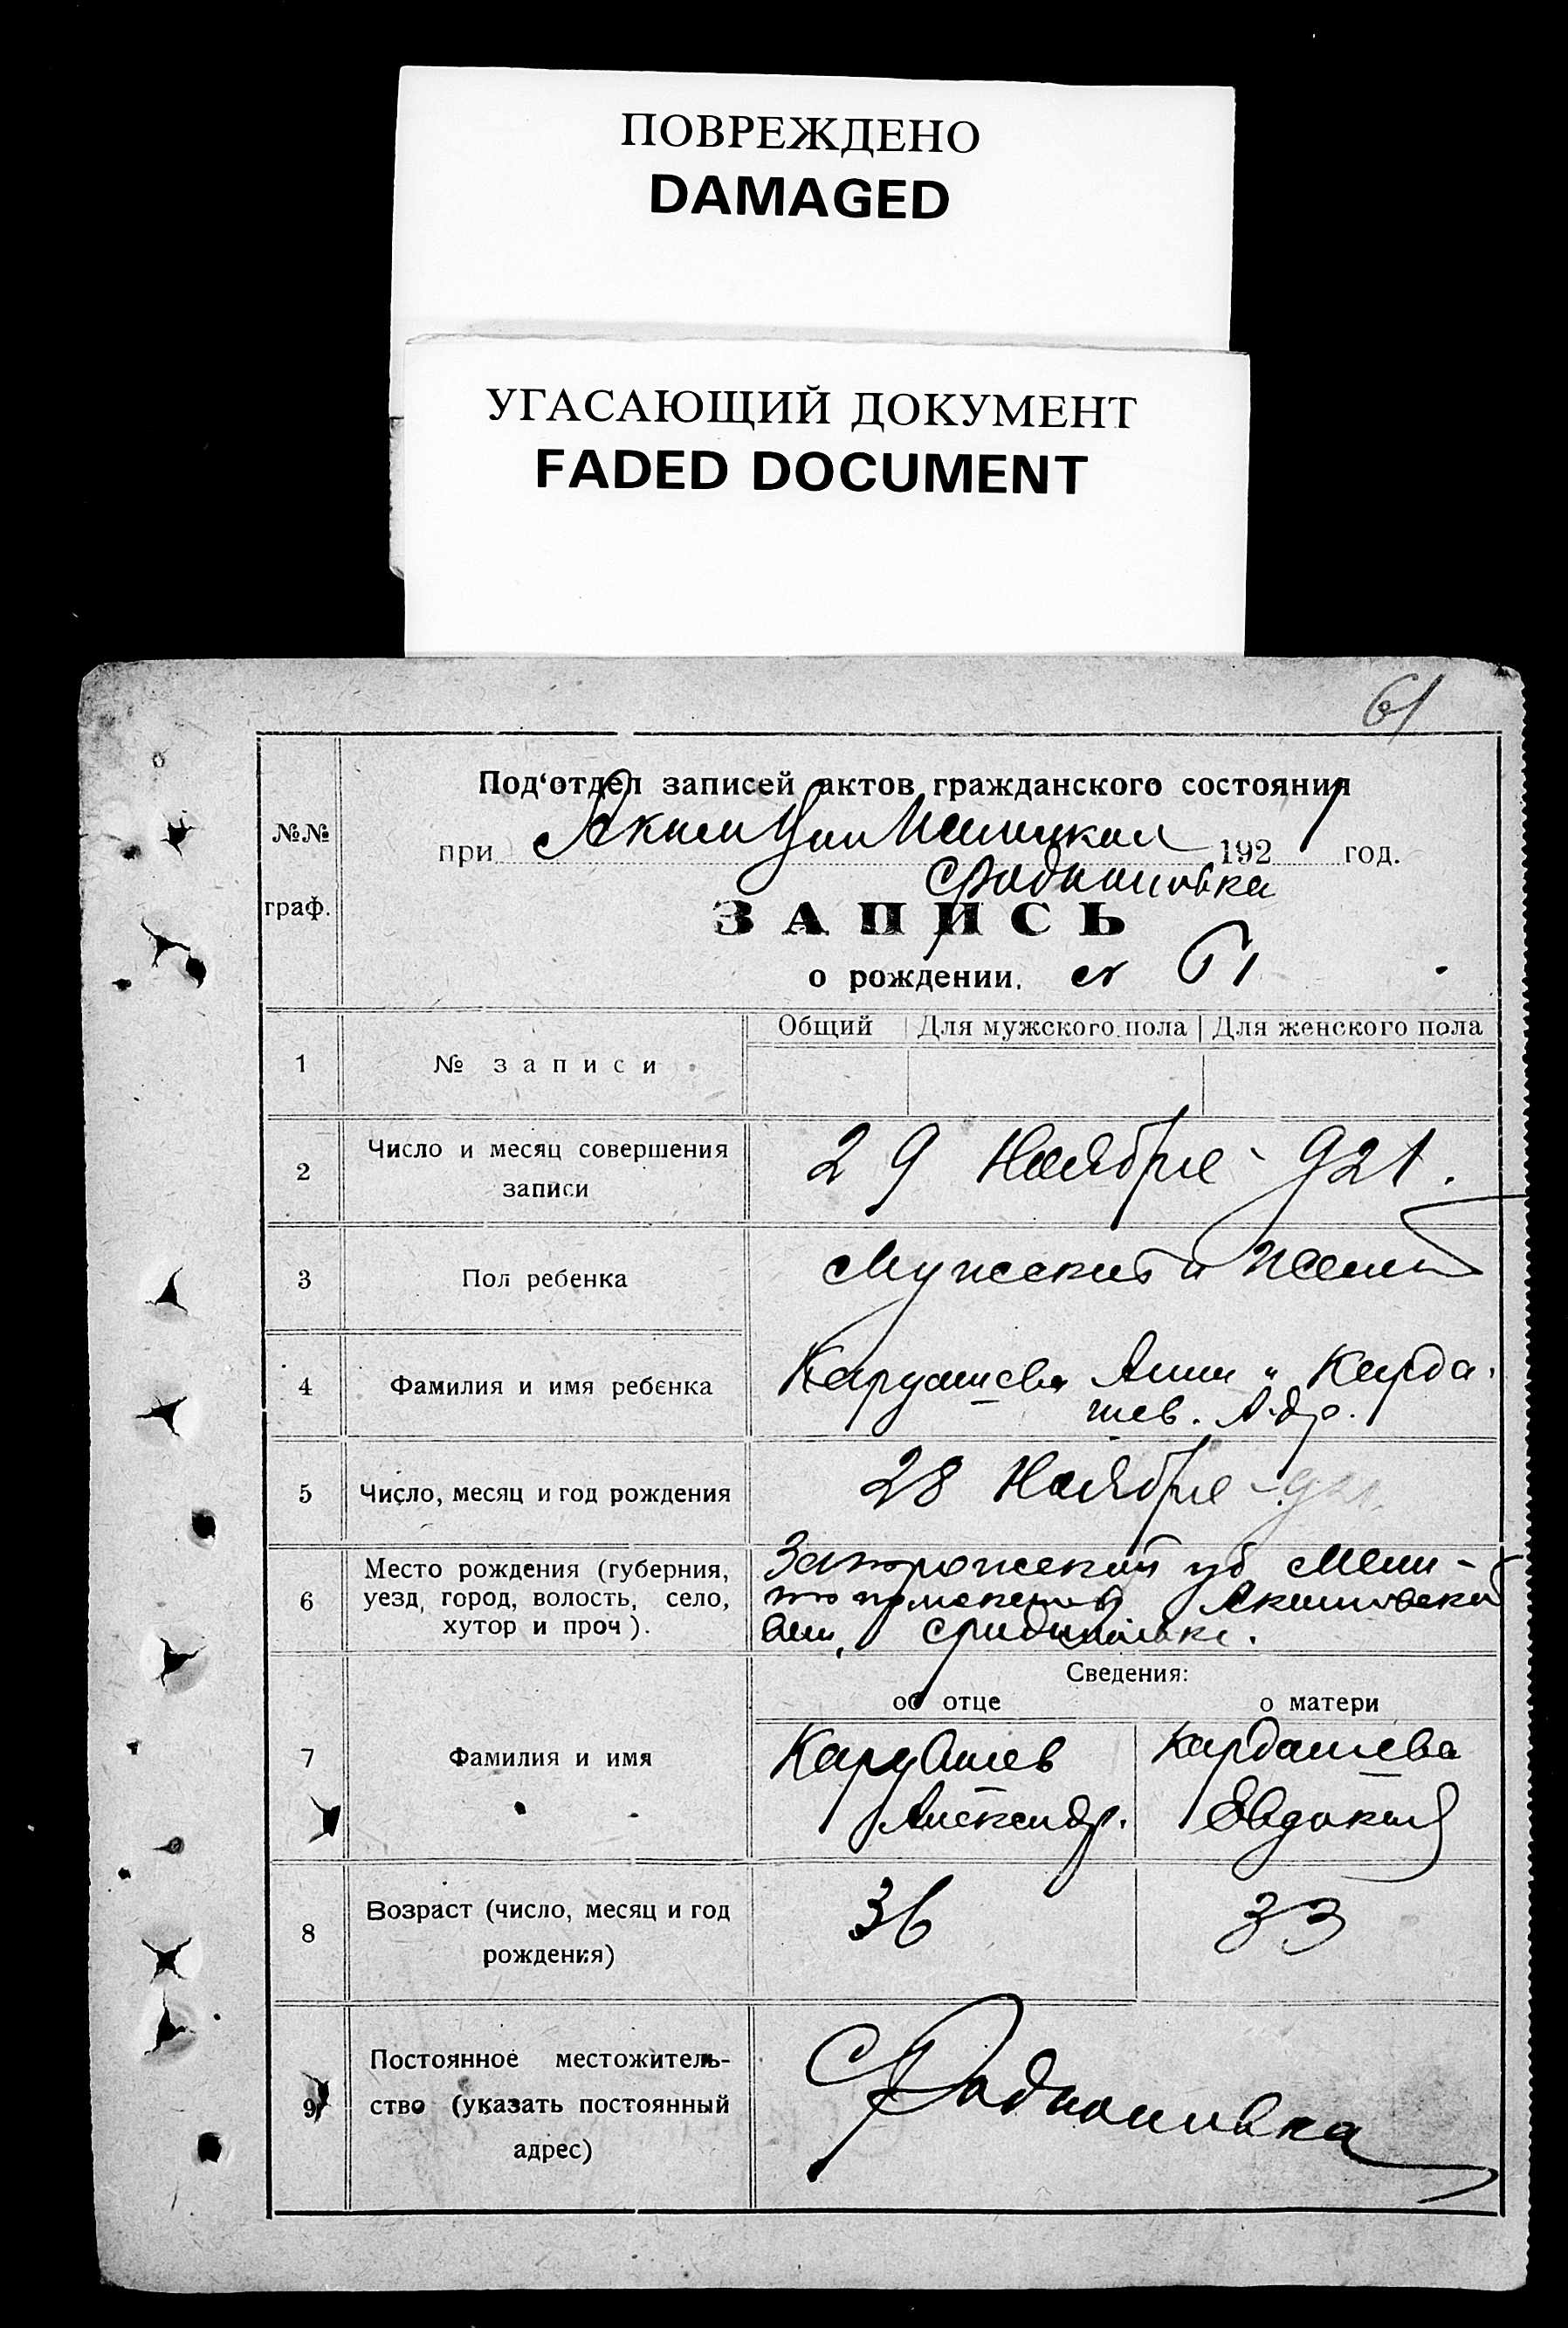 ПОВРЕЖДЕНО
DAMAGED
УГАСАЮЩИЙ ДОКУМЕНТ
FADED DOCUMENT
61
№№ граф.
Под‘отдел записей актов гражданского состояния
при 1921 год.
Родионовка
ЗАПИСЬ
о рождении. № 61
Общий Для мужского пола Для женского пола
1 № записи
2 Число и месяц совершения записи 29 Ноября - 921.
3 Пол ребенка Мужский и Женский
4 Фамилия и имя ребенка Кардашева Анна и Карда-
шев. А-др.
5 Число, месяц и год рождения 28 Ноября - 921.
6 Место рождения (губерния, Запорожской губ Мели-
уезд, город, волость, село, топольский Акимовской
хутор и проч). вол. Родионовке.
Сведения:
об отце о матери
7 Фамилия и имя Кардашев Кардашева
Александр. Евдокия
8 Возраст (число, месяц и год рождения) 36 33
9 Постоянное местожитель-
ство (указать постоянный
адрес) С Родионовка